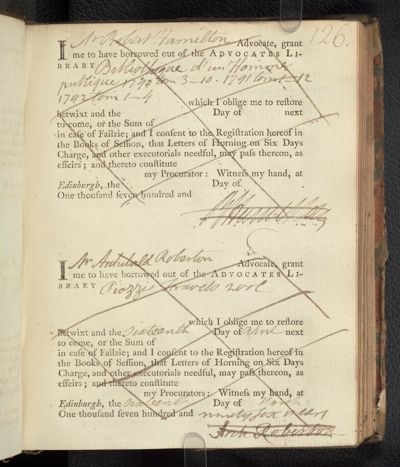 126.
I Mr Robert Hamelton Advocate, grant
me to have borrowed out of the ADVOCATES LI-
BRARY Bibliotheque d'un Homme
publique 1790 tom 3-10. 1791 tom 1-12
1792 tom 1-4
which I oblige me to restore
betwixt and the Day of next
to come, or the Sum of
in case of Failzie; and I consent to the Registration hereof in
the Books of Session, that Letters of Horning on Six Days
Charge, and other executorials needful, may pass thereon, as
effeirs; and thereto constitute
my Procurator: Witness my hand, at
Edinburgh, the Day of
One thousand seven hundred and
I Mr Archibald Roberton Advocate, grant
me to have borrowed out of the ADVOCATES LI-
BRARY Piozzis travels 2 vol
which I oblige me to restore
betwixt and the sixteenth Day of June next
to come, or the Sum of
in case of Failzie; and I consent to the Registration hereof in
the Books of Session, that Letters of Horning on Six Days
Charge, and other executorials needful, may pass thereon, as
effeirs; and thereto constitute
my Procurators: Witness my hand, at
Edinburgh, the sixteenth Day of March
One thousand seven hundred and ninety six years
Arch Roberton